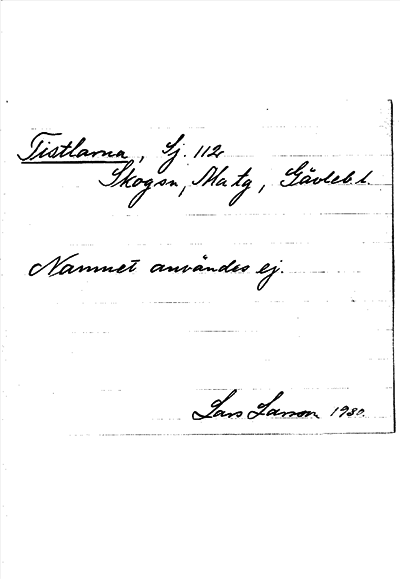 Tistlarna, Sj. 112
Skogsn, Matg, Gävleb. l.
Namnet användes ej.
Lars Larsson 1980.